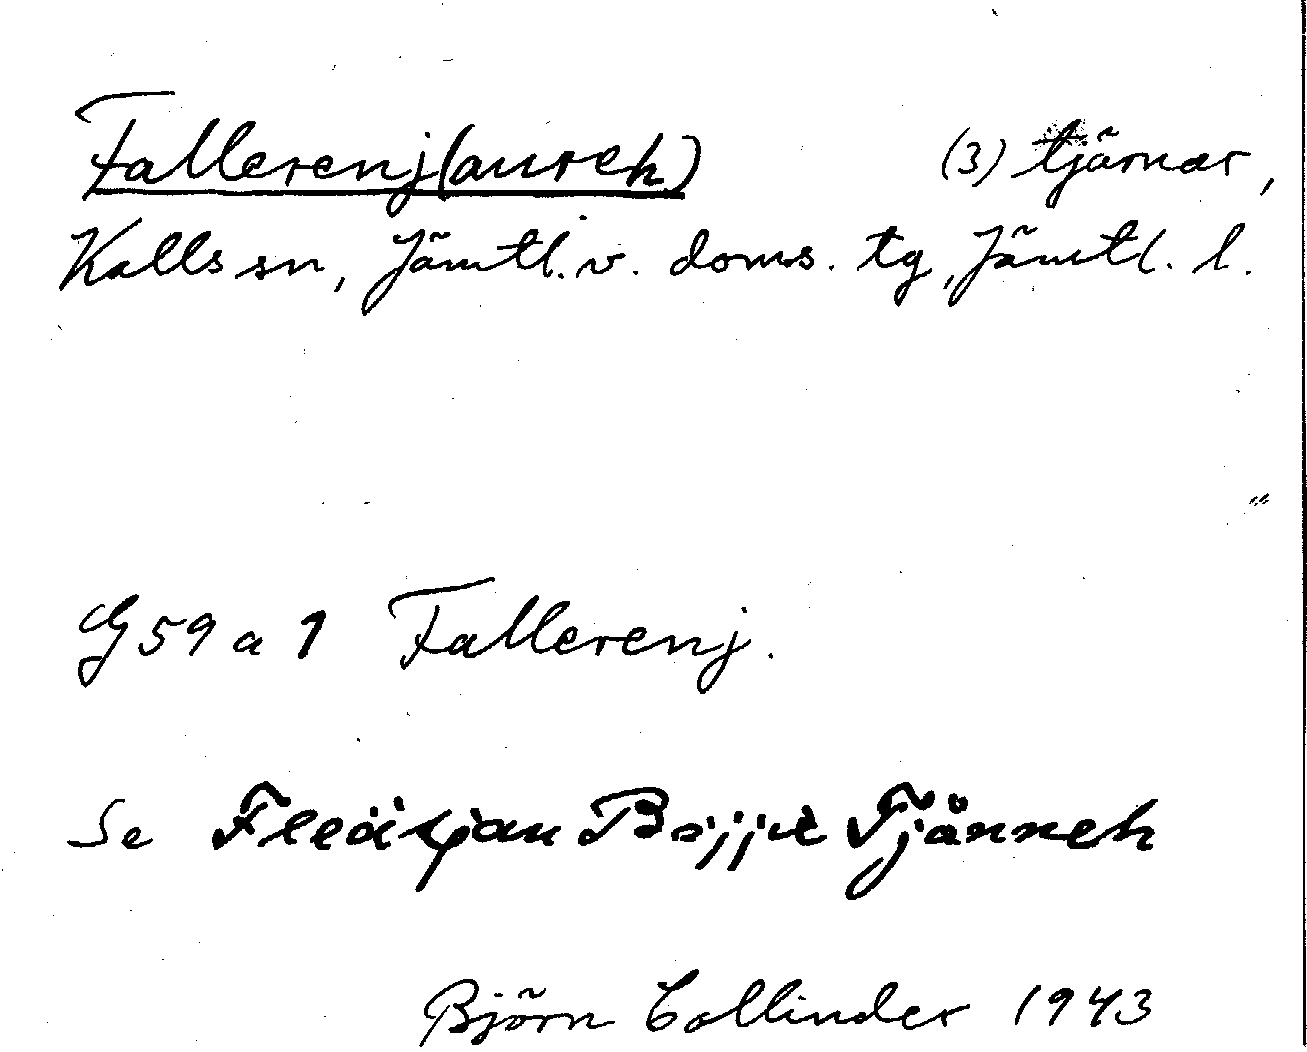 Fallerenj(aureh) (3) tjärnar,
Kalls sn, Jämtl. v. doms. tg, Jämtl. l.
G 59 a 1 Fallerenj.
Se Tjänneh
Björn Collinder 1943